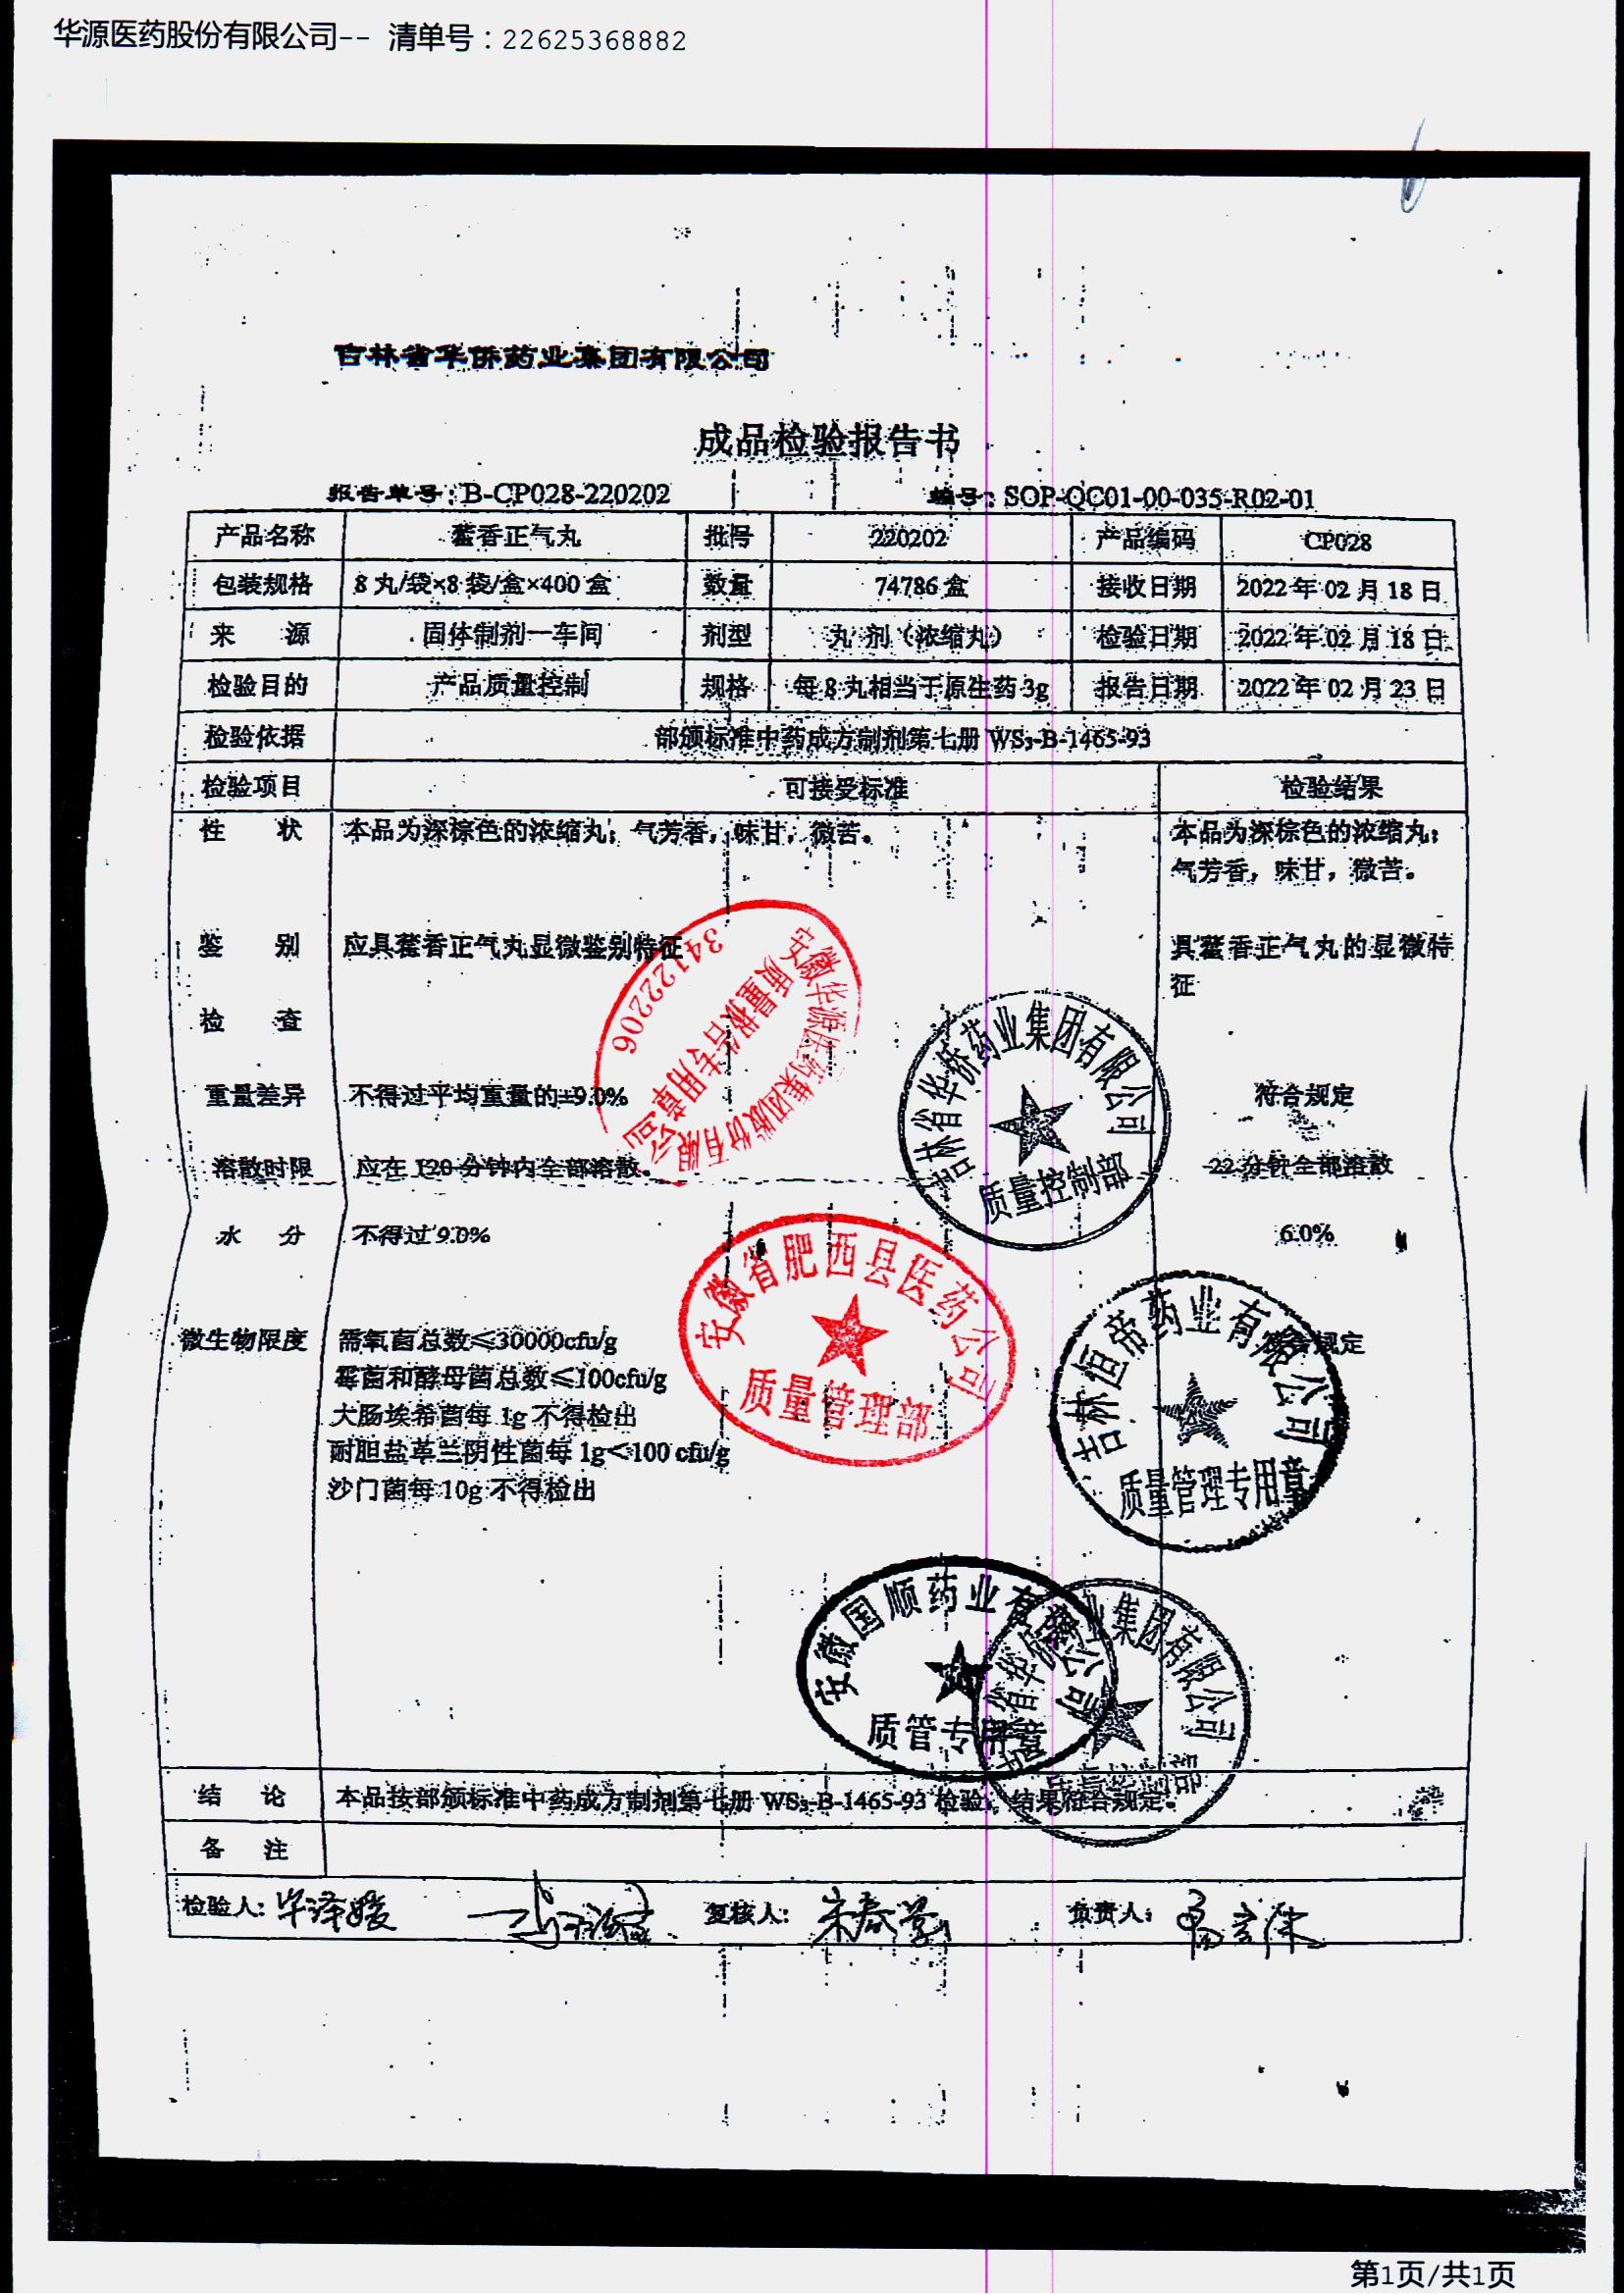 华源医药股份有限公司-- 清单号：22625368882
吉林省华侨药业集团有限公司
成品检验报告书
报告单号：B-CP028-220202 编号：SOP-QC01-00-035-R02-01
产品名称 藿香正气丸 批号 220202 产品编码 CP028
包装规格 8丸/袋×8袋/盒×400盒 数量 74786盒 接收日期 2022年02月18日
来 源 固体制剂一车间 剂型 丸剂（浓缩丸） 检验日期 2022年02月18日
检验目的 产品质量控制 规格 每8丸相当于原生药3g 报告日期 2022年02月23日
检验依据 部颁标准中药成方制剂第七册 WS₃-B-1465-93
检验项目 可接受标准 检验结果
性 状 本品为深棕色的浓缩丸；气芳香，味甘，微苦。 本品为深棕色的浓缩丸；
气芳香，味甘，微苦。
鉴 别 应具藿香正气丸显微鉴别特征 具藿香正气丸的显微特
征
检 查
重量差异 不得过平均重量的±9.0% 符合规定
溶散时限 应在120分钟内全部溶散。 22分钟全部溶散
水 分 不得过9.0% 6.0%
微生物限度 需氧菌总数≤30000cfu/g 符合规定
霉菌和酵母菌总数≤100cfu/g
大肠埃希菌每1g不得检出
耐胆盐革兰阴性菌每1g<100 cfu/g
沙门菌每10g不得检出
安徽华源医药集团股份有限公司
质量报告专用章
3412222206
吉林省华侨药业集团有限公司
质量控制部
安徽省肥西县医药公司
质量管理部
吉林恒帝药业有限公司
质量管理专用章
安徽国顺药业有限公司
质管专用章
吉林省华侨药业集团有限公司
结 论 本品按部颁标准中药成方制剂第七册 WS₃-B-1465-93 检验，结果符合规定。
备 注
检验人：毕泽媛 复核人：朱春莹 负责人：
第1页/共1页